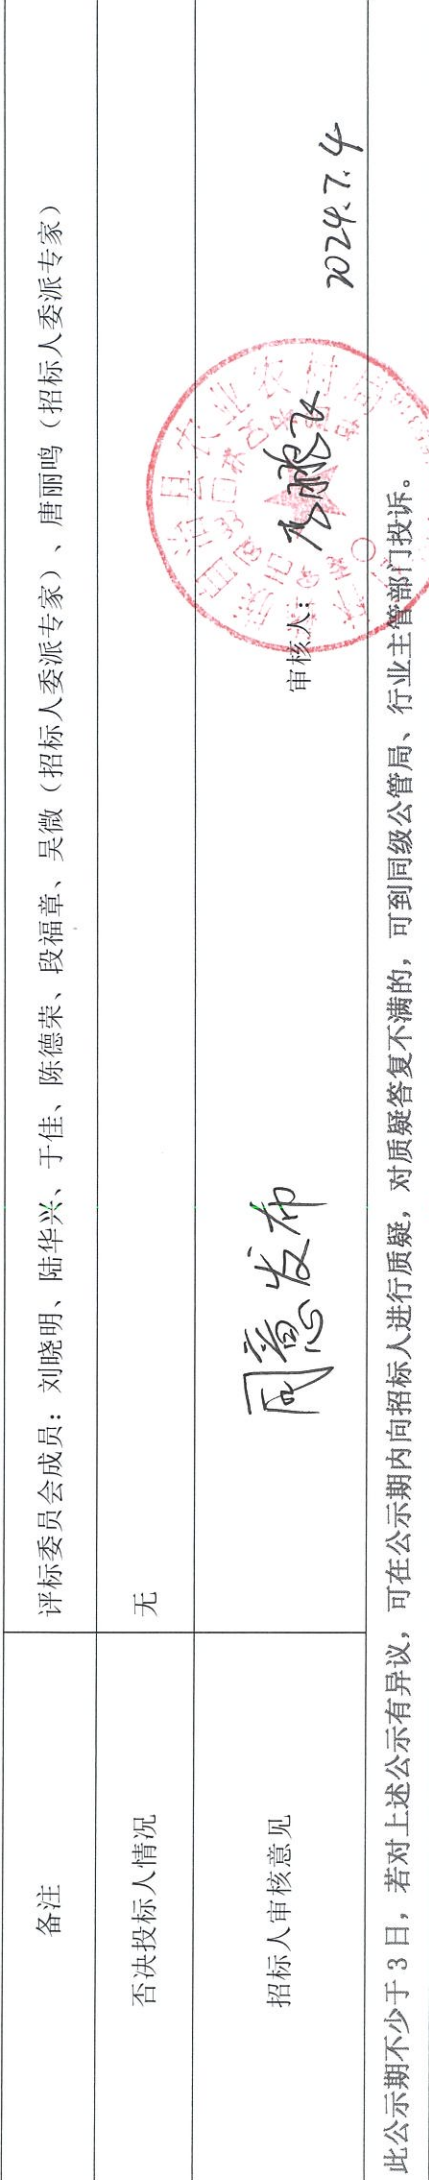 备注
评标委员会成员：刘晓明、陆华兴、于佳、陈德荣、段福章、吴微（招标人委派专家）、唐丽鸣（招标人委派专家）
否决投标人情况
无
招标人审核意见
同意发布
审核人：
2024.7.4
此公示期不少于 3 日，若对上述公示有异议，可在公示期内向招标人进行质疑，对质疑答复不满的，可到同级公管局、行业主管部门投诉。